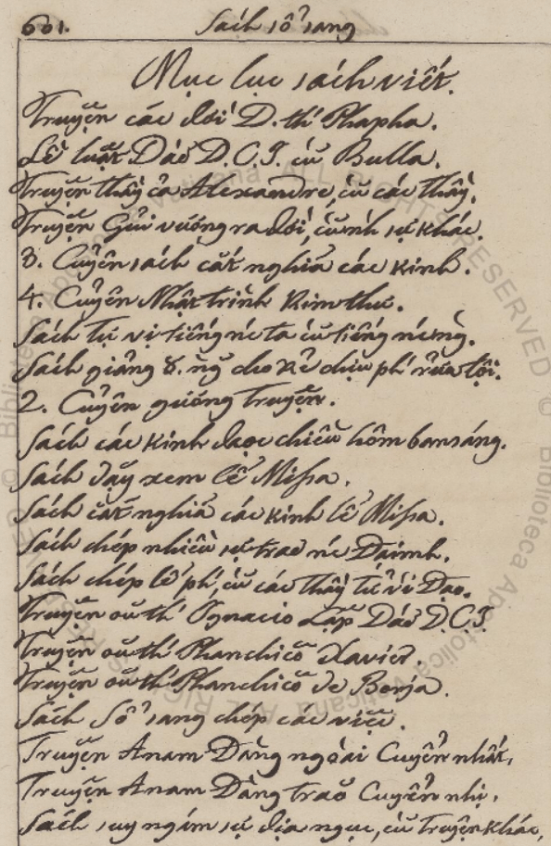 601. Sách sổ sang
Mục lục sách viết.
Truyện các đời D. thí Phapha.
Lề luật Dào D. C. J. cù Bulla.
Truyện thầy cả Alexandre, cù các thầy.
Truyện Gưi vương ra đời, cù nh sự khác.
3. Cuyển sách cắt nghĩa các kinh.
4. Cuyển Nhật trình kim thư.
Sách Tự vị tiếng nc ta cù tiếng nc ng.
Sách giảng 8. ng cho kẻ chịu phí rửa tội.
2. Cuyển gương truyện.
Sách các kinh đọc chiều hôm ban sáng.
Sách dạy xem lễ Missa.
Sách cắt nghĩa các kinh lễ Missa.
Sách chép nhiều sự trao nc Đại minh.
Sách chép lề phí, cù các thầy tử vì Đạo.
Truyện oũ thí Ignacio Lập Dào D. C. J.
Truyện oũ thí Phanchicô Xavier.
Truyện oũ thí Phanchicô de Borja.
Sách Sổ sang chép các việc.
Truyện Anam Đàng ngoài Cuyển nhất.
Truyện Anam Đàng traõ Cuyển nhị.
Sách suy ngám sự địa ngục, cù truyện khác,
Biblioteca Apostolica Vaticana ALL RIGHTS RESERVED ©